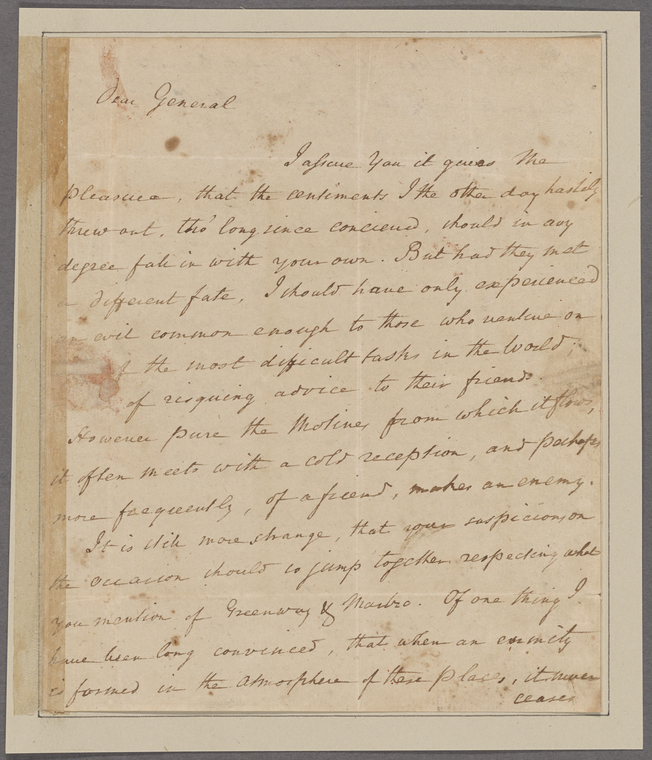 Dear General
I assure You it gives Me
pleasure, that the centiments I the other day hastily
threw out, tho' long since concieved, should in any
degree fall in with your own. But had they met
a different fate, I should have only experienced
an evil common enough to those who venture on
the most difficult tasks in the World,
of risquing advice to their friends.
However pure the Motives from which it flows,
it often meets with a cold reception, and perhaps
more frequently, of a friend, makes an enemy.
It is still more strange, that your suspicions on
the occasion should so jump together respecting what
you mention of Greenway &
Of one thing I
have been long convinced, that when an enmity
is formed in the atmosphere of these places, it never
ceases